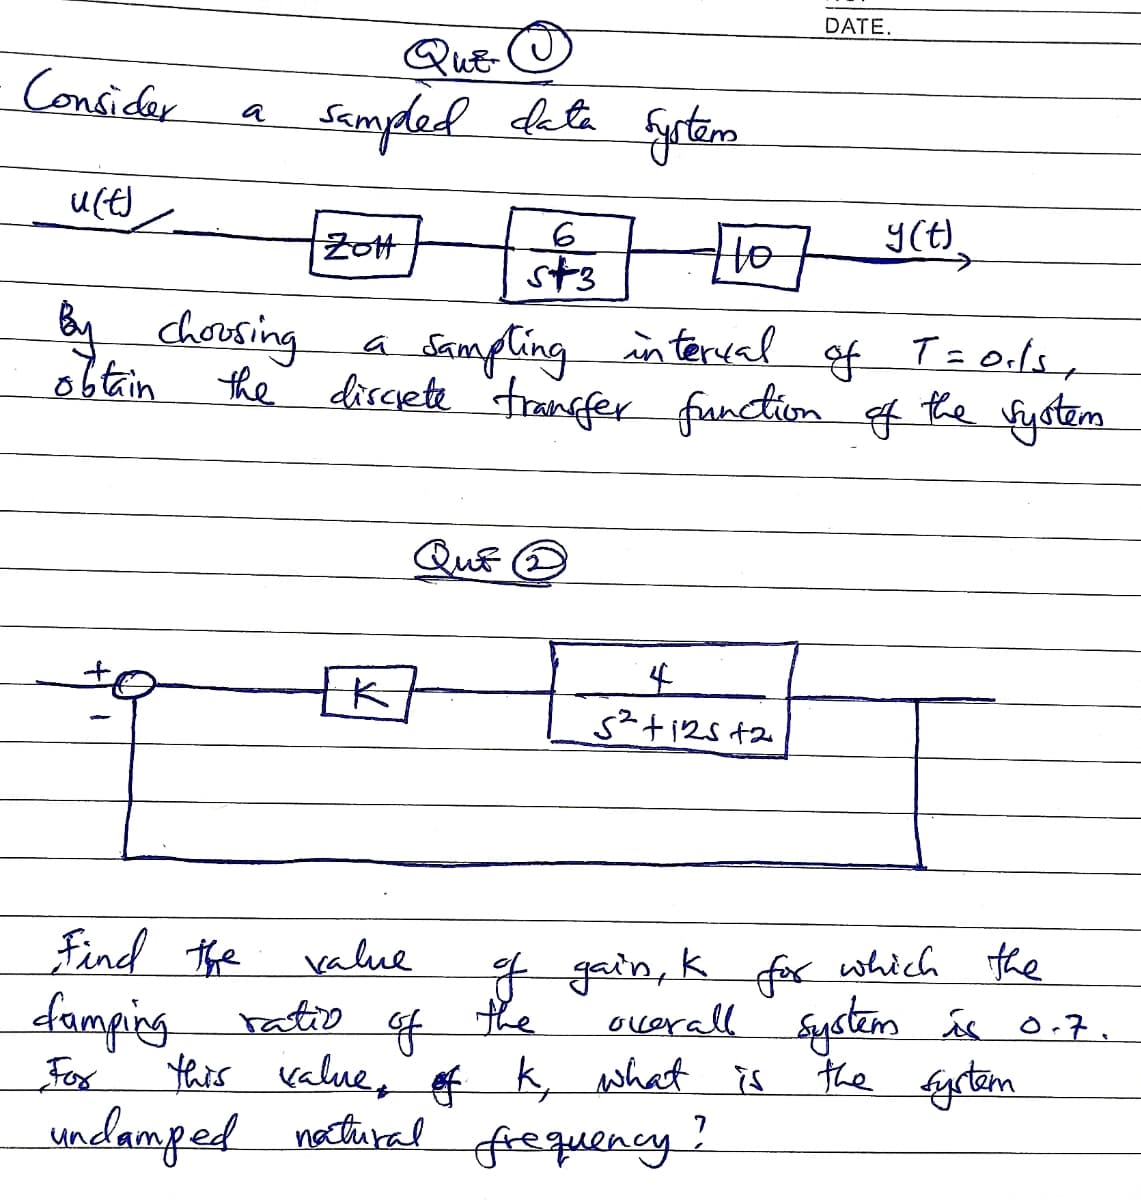 DATE.
Que ①
Consider a sampled data system
u(t)
ZOH
6
s+3
10
y(t)
By choosing a sampling interval of T = 0.1s,
obtain the discrete transfer function of the system
Que ②
+
-
K
4
s²+12s+2
Find the value of gain, K for which the
damping ratio of the overall system is 0.7.
For this value, of K, what is the system
undamped natural frequency?